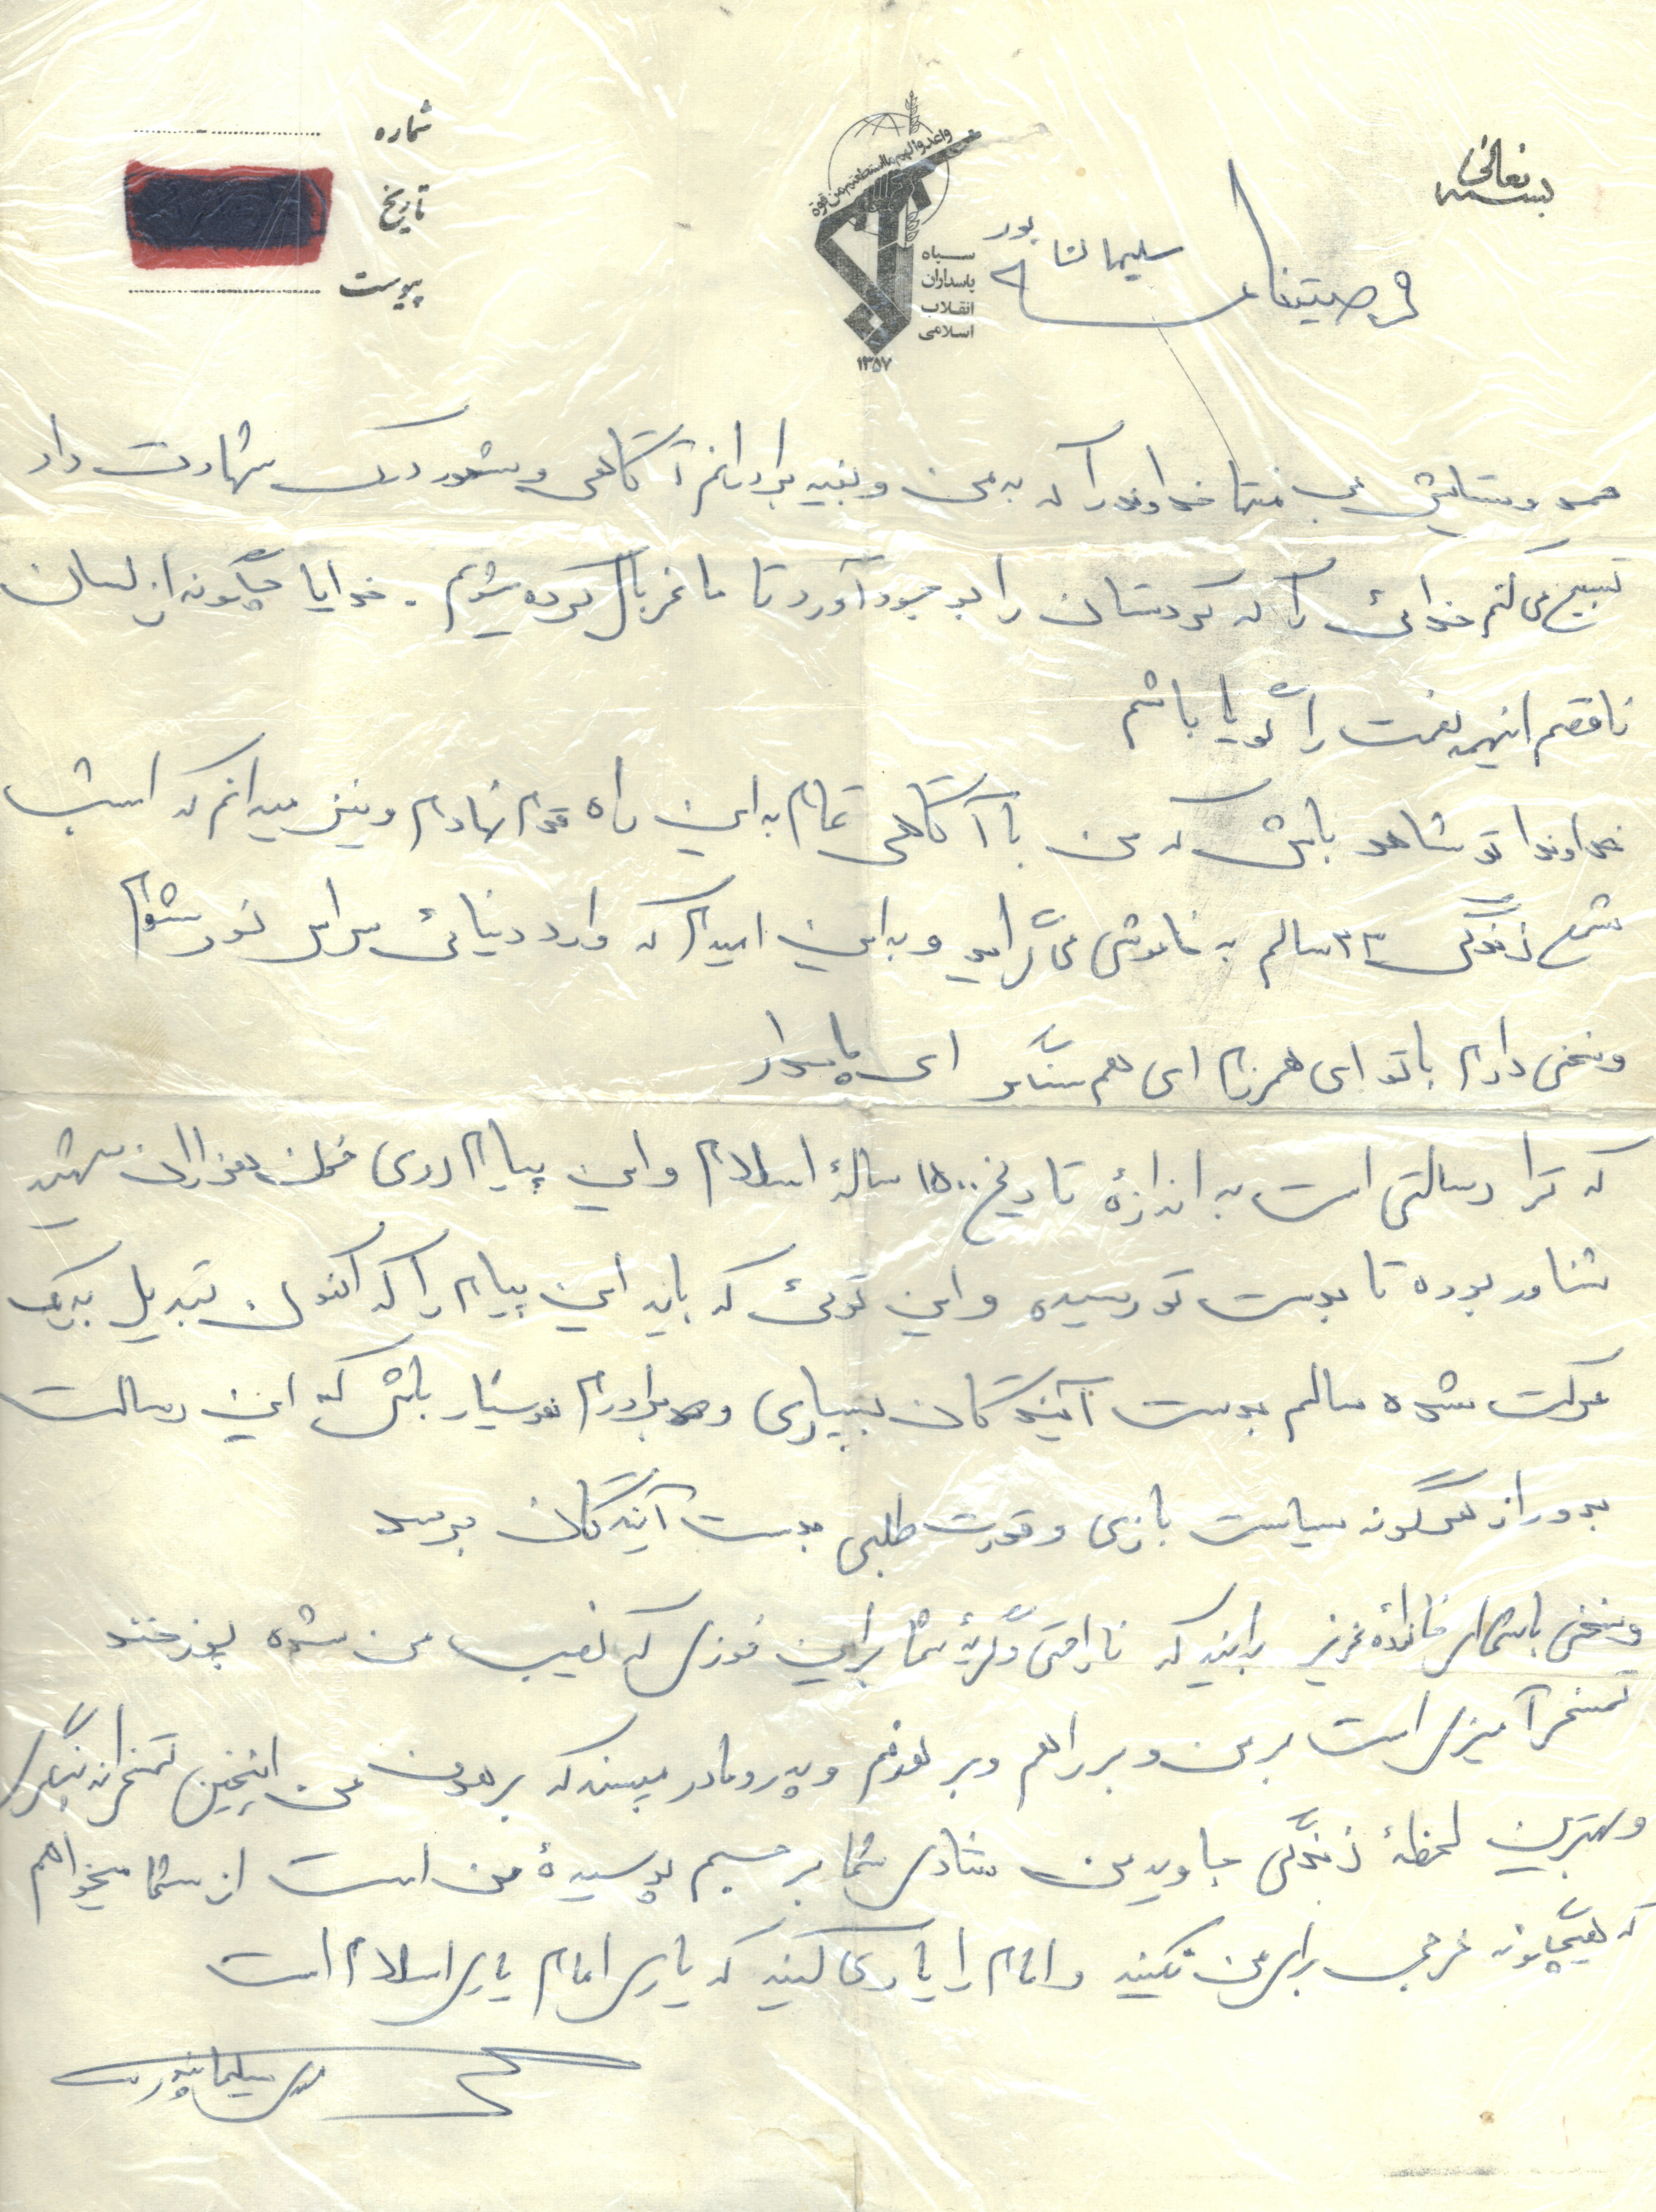 بسمه تعالی
شماره
تاریخ
پیوست
واعدوا لهم مااستطعتم من قوة
سپاه
پاسداران
انقلاب
اسلامی
۱۳۵۷
وصیتنامه
سلیمانشاپور
حمد و ستایش بی منتها خداوند را که به من و بقیه برادرانم آگاهی و شعور درک شهادت داد
تسبیح می کنم خدائی را که کردستان را بوجود آورد تا ما غربال کرده شویم . خدایا چگونه از لسان
ناقصم اینهمه نعمت را گویا باشم
خداوندا تو شاهد باش که من با آگاهی تمام به این راه قدم نهادم و نیز میدانم که امشب
شمع زندگی ۲۳ سالم به خاموشی می گراید و به این امیدم که وارد دنیائی سراسر نور شوم
و سخنی دارم با تو ای همرزم ای هم سنگر ای پاسدار
که ترا رسالتی است به اندازهٔ تاریخ ۱۵۰۰ سالهٔ اسلام و این پیام روی خون هزاران شهید
شناور بوده تا بدست تو رسیده و این توئی که باید این پیام را که اکنون تبدیل به یک
حرکت شده سالم بدست آیندگان بسپاری و برادرم هوشیار باش که این رسالت
بدور از هرگونه سیاست بازی و قدرت طلبی بدست آیندگان برسد
و سخنی با شما ای خانوادهٔ عزیز بدانید که ناراحتی و گریهٔ شما برای این فوزی که نصیب من شده پوزخند
تمسخر آمیزی است بر من و بر راهم و بر هدفم و پدر و مادر مپسند که بر هدف من اینچنین تمسخرانه بنگری
و بهترین لحظهٔ زندگی جاوید من شادی شما بر جسم پوسیدهٔ من است از شما میخواهم
که هیچگونه خرجی برای من نکنید و امام را یاری کنید که یاری امام یاری اسلام است
سلیمانپور